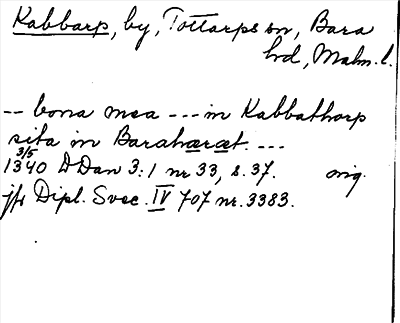 Kabbarp, by, Tottarps sn, Bara
hd, Malm. l.
-- bona mea --- in Kabbathorp
sita in Barahæræt. ---
3/5
1340 D Dan 3:1 nr 33, s. 37. orig.
jfr Dipl. Svec. IV 707 nr. 3383.